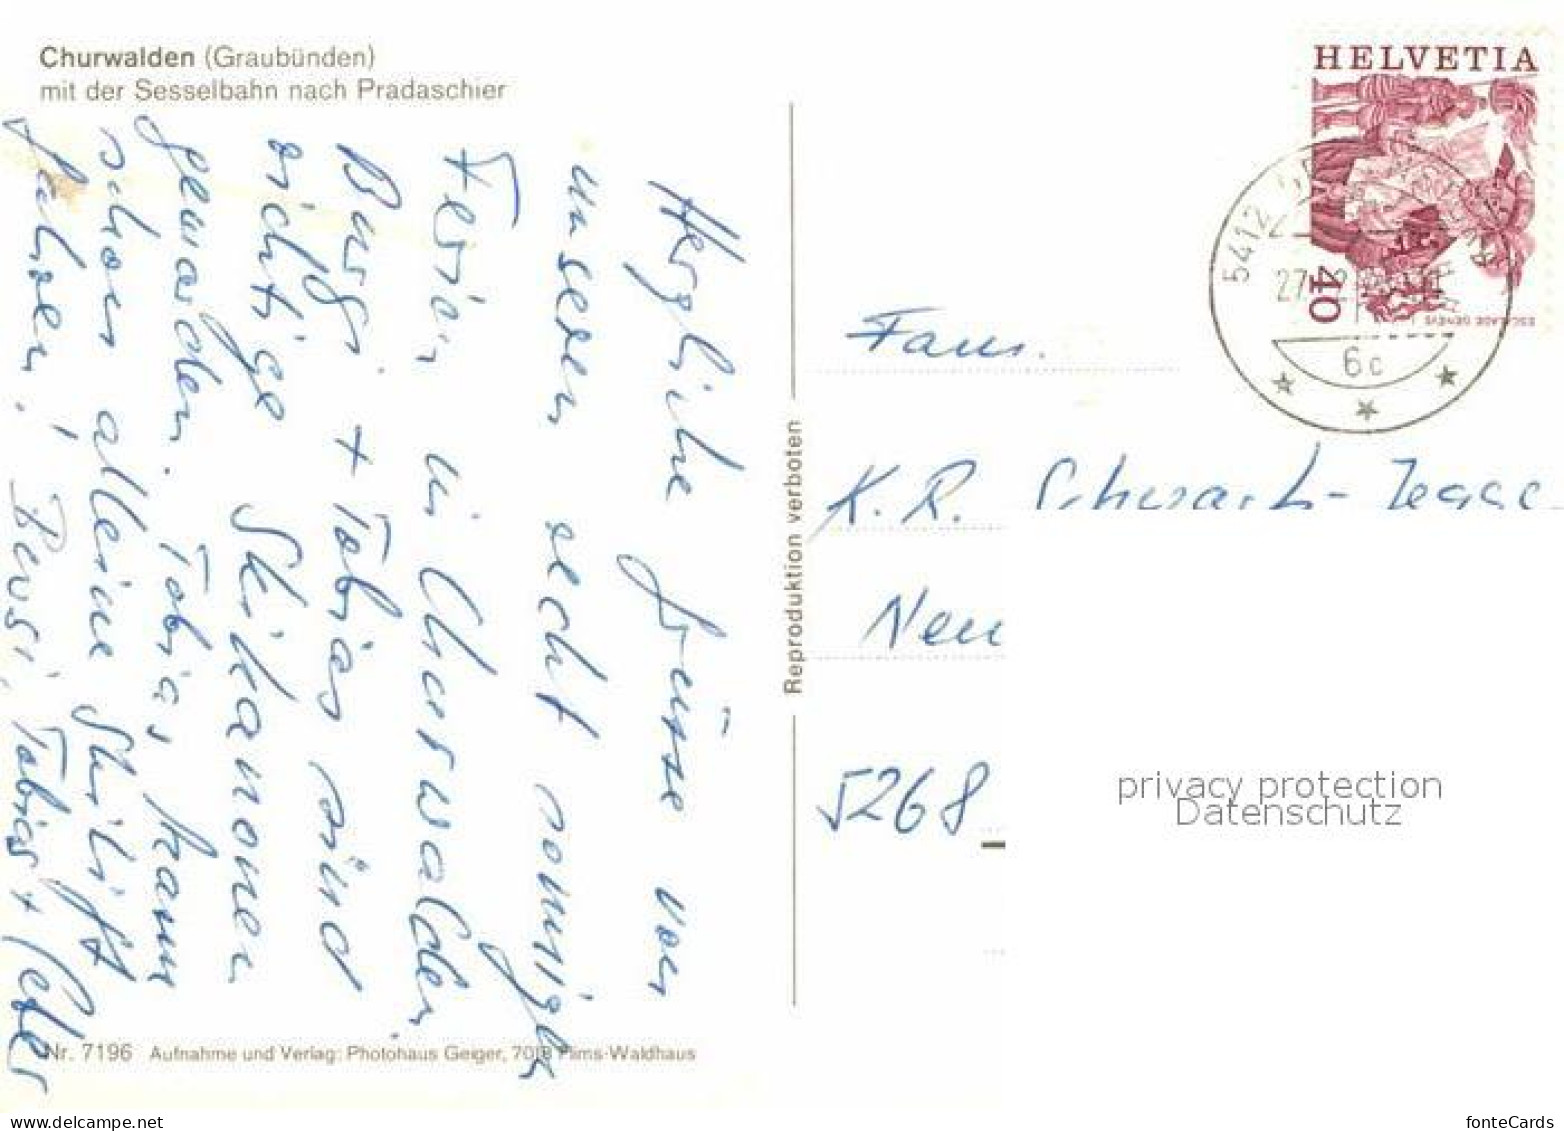 Churwalden (Graubünden)
mit der Sesselbahn nach Pradaschier
Herzliche Grüsse von
unseren recht sonnigen
Ferien in Churwalden.
Bursi + Tobias sind
richtige Skikanonen
geworden. Tobias, kann
schon alleine Skilift
fahren. Bursi, Tobias + Peter
Nr. 7196 Aufnahme und Verlag: Photohaus Geiger, 7018 Flims-Waldhaus
Reproduktion verboten
HELVETIA
40
ESCALADE GENÈVE
5412
27.
6c
Fam.
K. R.
Neu
5268
privacy protection
Datenschutz
fonteCards